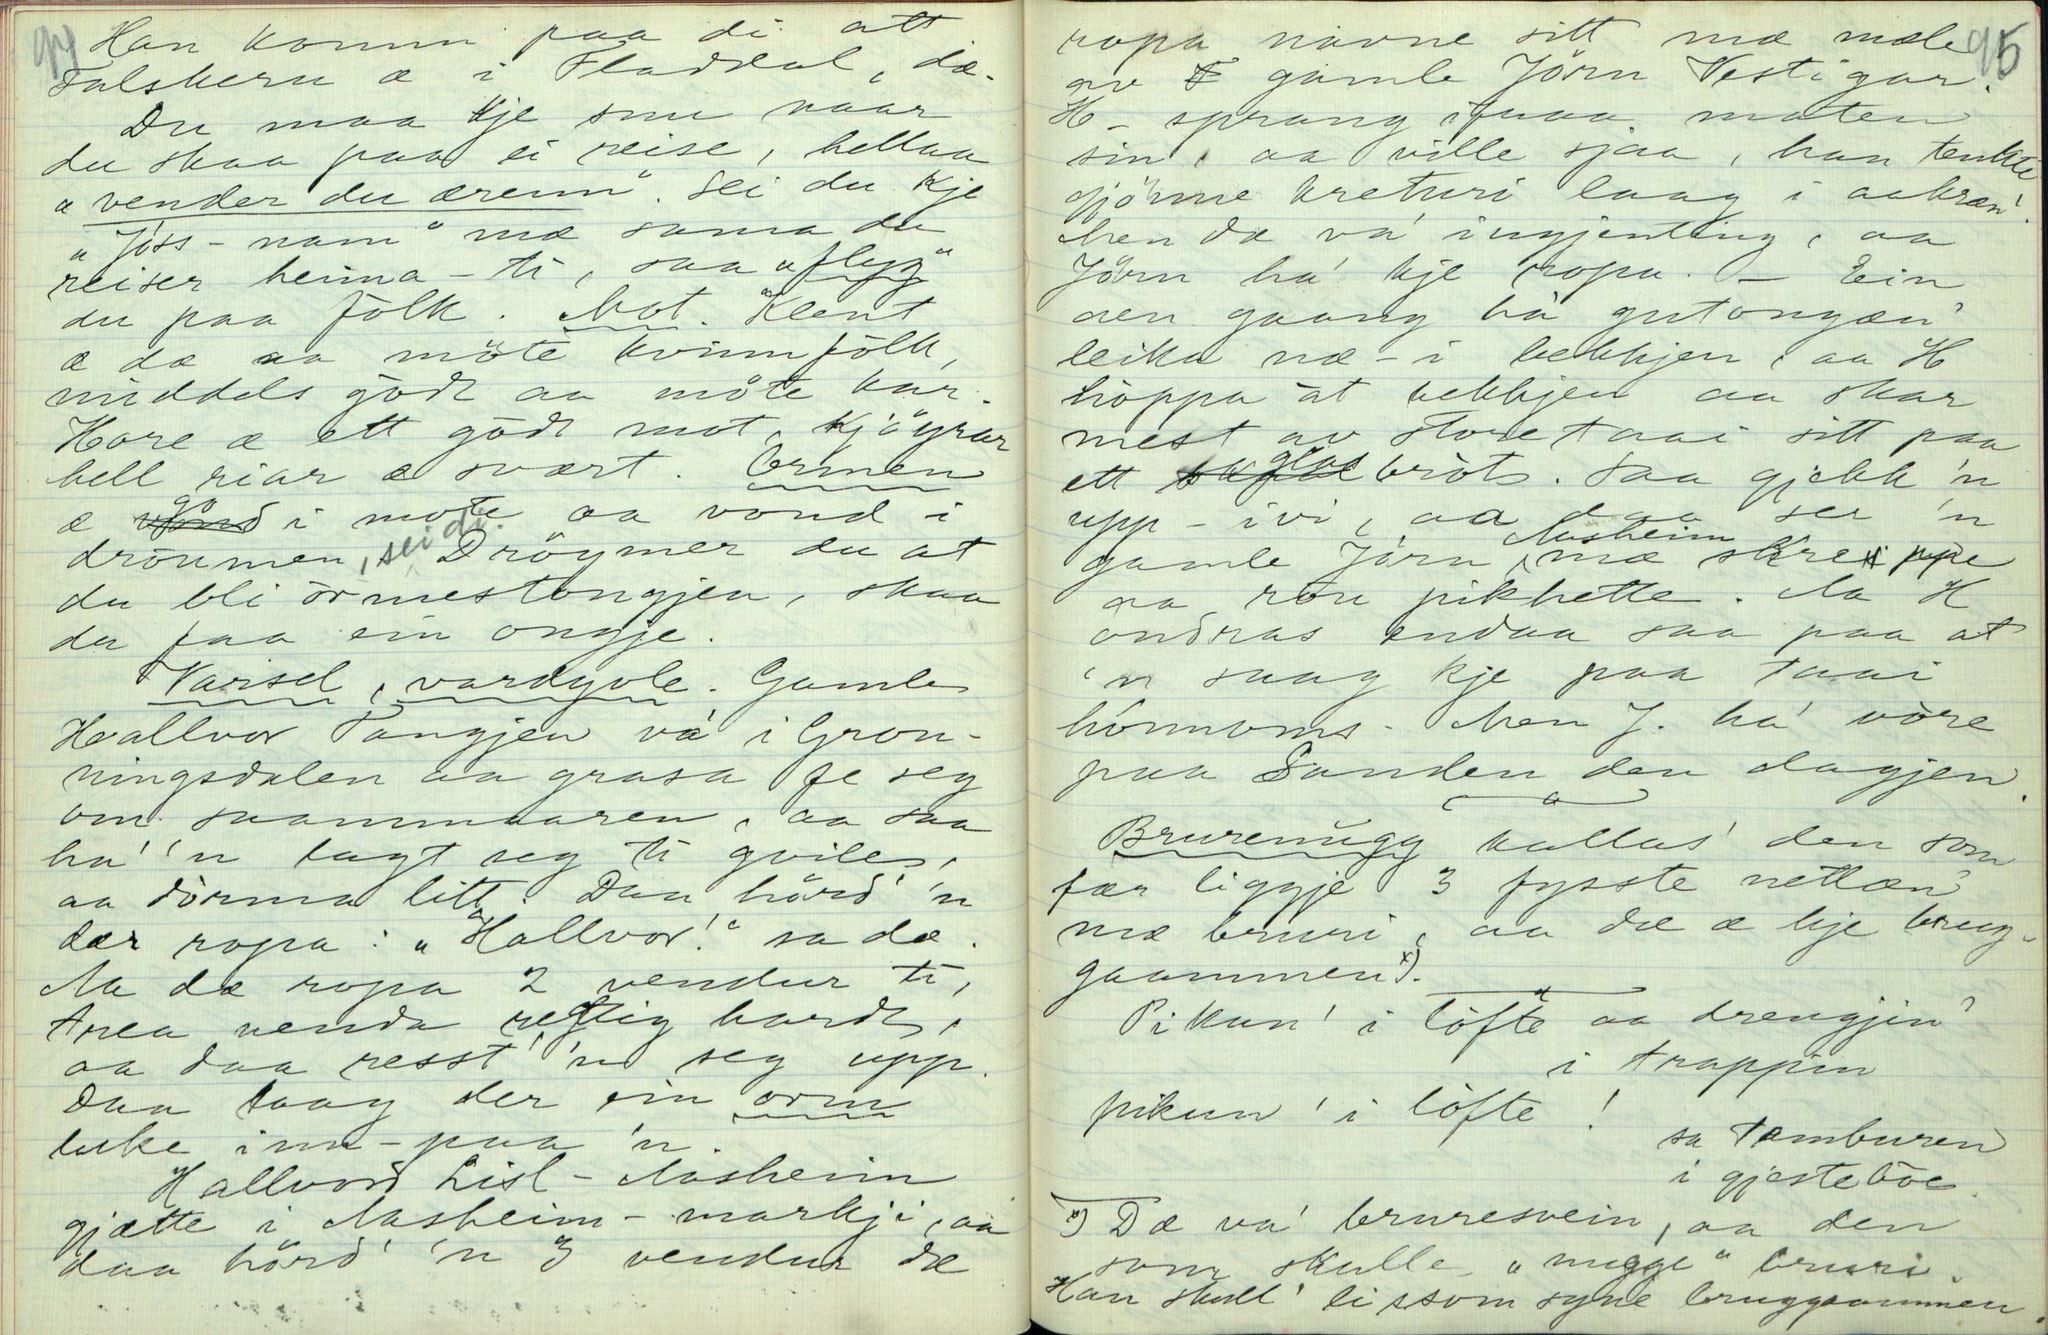 94
Han komm paa di att
Falskeru æ i Fladdal, dæ.
Du maa kje snu naar
du skaa paa ei reise, hellaa
"vender du æreim". Sei du kje
"Jöss-nam" mæ sama du
reiser heima-ti, saa "flyg"
du paa fólk. Mot. Kleint
æ dæ aa möte kvinnfólk,
middels gódt aa möte kar.
Hore æ ett gódt mot, kjögrar
hell riar æ svært. Ormen
æ go i mote aa vond i
droumen, sei di. Dröymer du at
du bli órmestongjen, skaa
du faa ein ongje.
Varsel, vardyvle. Gamle
Hallvor Tangjen vá i Gron-
ningsdalen aa grasa fe seg
om saammaaren, aa saa
há' 'n lagt seg ti gvile,
aa dórma litt. Daa hörd' 'n
dær ropa: "Hallvor!" sa dæ.
Aa dæ ropa 2 vendur ti,
trea venda reftig hardt,
aa daa resst' 'n seg upp.
Daa laag der ein orm
luke inn-paa 'n.
Hallvord Lisl-Aasheim
gjætte i Aasheim-markji, aa
daa hörd' 'n 3 vendur dæ
95
ropa navne sitt mæ mæle
av gamle Jörn Vestigar.
H- sprang ifraa maten
sin, aa ville sjaa, han tenkte
gjönne kreturi laag i aakræn'.
Men dæ vá ingjenting, aa
Jörn há' kje ropa. - Ein
aen gaang há' gutongæn'
leika næ-i bekkjen, aa H
hóppa at bekkjen aa skar
mest av storetaai sitt paa
ett glasbrót. Saa gjekk 'n
upp-ivi, aa daa ser 'n
gamle Jörn Aasheim mæ skreppe
aa rou pikhette. Aa H
ondras endaa saa paa at
'n saag kje paa taai
hónnoms. Men J. há' vöre
paa Sanden den dagjen.
Brurenugg kallas' den som
fær liggje 3 fysste nettæn'
mæ bruri, aa dæ æ kje brug-
gaammen x).
Pikun' i lófte aa drengjin'
i trappin
pikun' i lófte!
sa tamburen
i gjestebóe.
x) Dæ vá' bruresvein, aa den
som skulle "nugge" bruri.
Han skull' lissom syne bruggaammen.